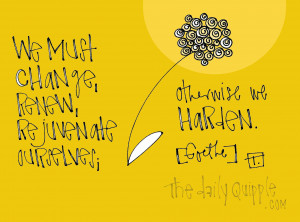 We must
change,
renew,
rejuvenate
ourselves;
otherwise we
harden.
[Goethe]
T.
The daily quipple
.com